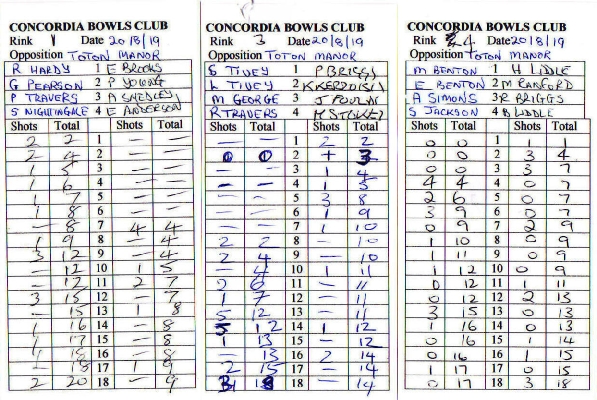 CONCORDIA BOWLS CLUB
Rink 1 Date 20/8/19
Opposition TOTON MANOR
R HARDY 1 E BROOKS
G PEARSON 2 P YOUNG
P TRAVERS 3 A SHEDLEY
S NIGHTINGALE 4 E ANDERSON
Shots Total Shots Total
2 2 1 — —
2 4 2 — —
1 5 3 — —
1 6 4 — —
1 7 5 — —
1 8 6 — —
— 8 7 4 4
1 9 8 — 4
3 12 9 — 4
— 12 10 1 5
— 12 11 2 7
3 15 12 — 7
— 15 13 1 8
1 16 14 — 8
1 17 15 — 8
1 18 16 — 8
— 18 17 1 9
2 20 18 — 9
CONCORDIA BOWLS CLUB
Rink 3 Date 20/8/19
Opposition TOTON MANOR
S TIVEY 1 P BRIGGS
L TIVEY 2
M GEORGE 3
R TRAVERS 4
Shots Total Shots Total
— — 1 2 2
0 0 2 + 3
— — 3 1 4
— — 4 1 5
— — 5 3 8
— — 6 1 9
— — 7 1 10
2 2 8 — 10
2 4 9 — 10
— 4 10 1 11
2 6 11 — 11
1 7 12 — 11
5 12 13 — 11
12 14 1 12
1 13 15 — 12
— 13 16 2 14
2 15 17 — 14
3 18 18 — 14
CONCORDIA BOWLS CLUB
Rink 4 Date 20/8/19
Opposition TOTON MANOR
M BENTON 1 H LIDDLE
E BENTON 2 M RANFORD
A SIMONS 3 R BRIGGS
S JACKSON 4 B LIDDLE
Shots Total Shots Total
0 0 1 1 1
0 0 2 3 4
0 0 3 3 7
4 4 4 0 7
2 6 5 0 7
3 9 6 0 7
0 9 7 2 9
1 10 8 0 9
1 11 9 0 9
1 12 10 0 9
0 12 11 1 11
0 12 12 2 13
3 15 13 0 13
1 16 14 0 13
0 16 15 1 14
0 16 16 1 15
1 17 17 0 15
0 17 18 3 18